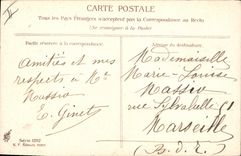 CARTE POSTALE
Tous les Pays Étrangers n'acceptent pas la Correspondance au Recto
(Se renseigner à la Poste)
Partie réservée à la correspondance.
Adresse du destinataire.
Amitiés et mes
respects à Mr
Massiv
C. Ginet
Mademoiselle
Marie-Louise
Massiv
rue Sylvabelle 61
Marseille
(B.d.R.)
Série 1292